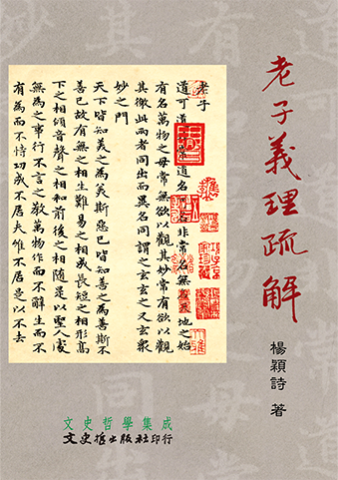 老子義理疏解
楊穎詩 著
老子
道可道非常道名可名非常名無名天地之始
有名萬物之母常無欲以觀其妙常有欲以觀
其徼此兩者同出而異名同謂之玄玄之又玄眾
妙之門
天下皆知美之為美斯惡已皆知善之為善斯不
善已故有無之相生難易之相成長短之相形高
下之相傾音聲之相和前後之相隨是以聖人處
無為之事行不言之教萬物作而不辭生而不
有為而不恃功成不居夫惟不居是以不去
文史哲學集成
文史哲出版社印行